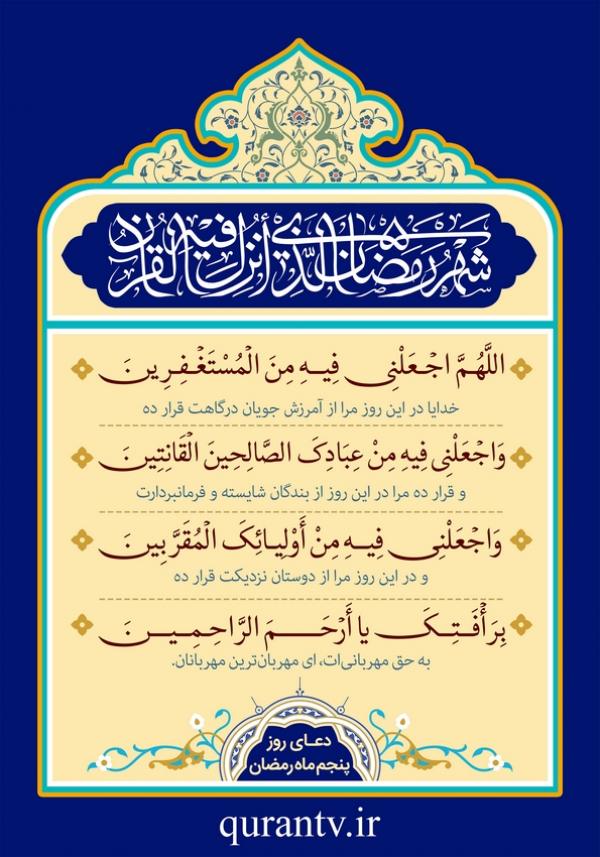 شَهْرُ رَمَضَانَ الَّذِي أُنْزِلَ فِيهِ الْقُرْآنُ
اللَّهُمَّ اجْعَلْنِی فِیهِ مِنَ الْمُسْتَغْفِرِینَ
خدایا در این روز مرا از آمرزش جویان درگاهت قرار ده
وَاجْعَلْنِی فِیهِ مِنْ عِبَادِکَ الصَّالِحِینَ الْقَانِتِینَ
و قرار ده مرا در این روز از بندگان شایسته و فرمانبردارت
وَاجْعَلْنِی فِیهِ مِنْ أَوْلِیائِکَ الْمُقَرَّبِینَ
و در این روز مرا از دوستان نزدیکت قرار ده
بِرَأْفَتِکَ یا أَرْحَمَ الرَّاحِمِینَ
به حق مهربانی‌ات، ای مهربان‌ترین مهربانان.
دعای روز
پنجم ماه رمضان
qurantv.ir